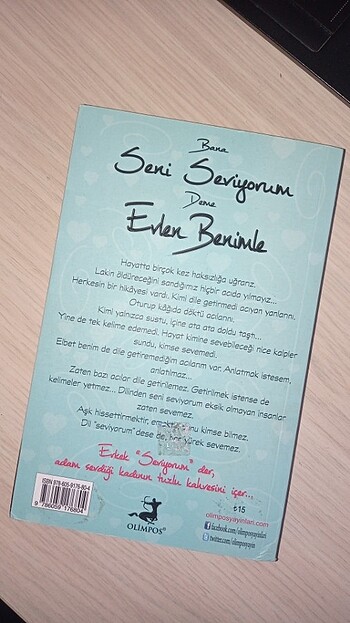 Bana
Seni Seviyorum
Deme
Evlen Benimle
Hayatta birçok kez haksızlığa uğrarız.
Lakin öldüreceğini sandığımız hiçbir acıda yılmayız...
Herkesin bir hikâyesi vardı. Kimi dile getirmedi acıyan yanlarını.
Oturup kâğıda döktü acılarını.
Kimi yalnızca sustu, içine ata ata doldu taştı...
Yine de tek kelime edemedi. Hayat kimine sevebileceği nice kalpler
sundu, kimse sevemedi.
Elbet benim de dile getiremediğim acılarım var. Anlatmak istesem,
anlatılmaz...
Zaten bazı acılar dile getirilemez. Getirilmek istense de
kelimeler yetmez... Dilinden seni seviyorum eksik olmayan insanlar
zaten sevemez.
Aşk hissettirmektir, emektir bunu kimse bilmez.
Dil "seviyorum" dese de, her yürek sevemez.
Erkek "Seviyorum" der,
adam sevdiği kadının tuzlu kahvesini içer...
ISBN 978-605-9176-80-4
9 786059 176804
OLİMPOS
₺15
olimposyayinlari.com
facebook.com/olimposyayinlari
twitter.com/olimposyayin